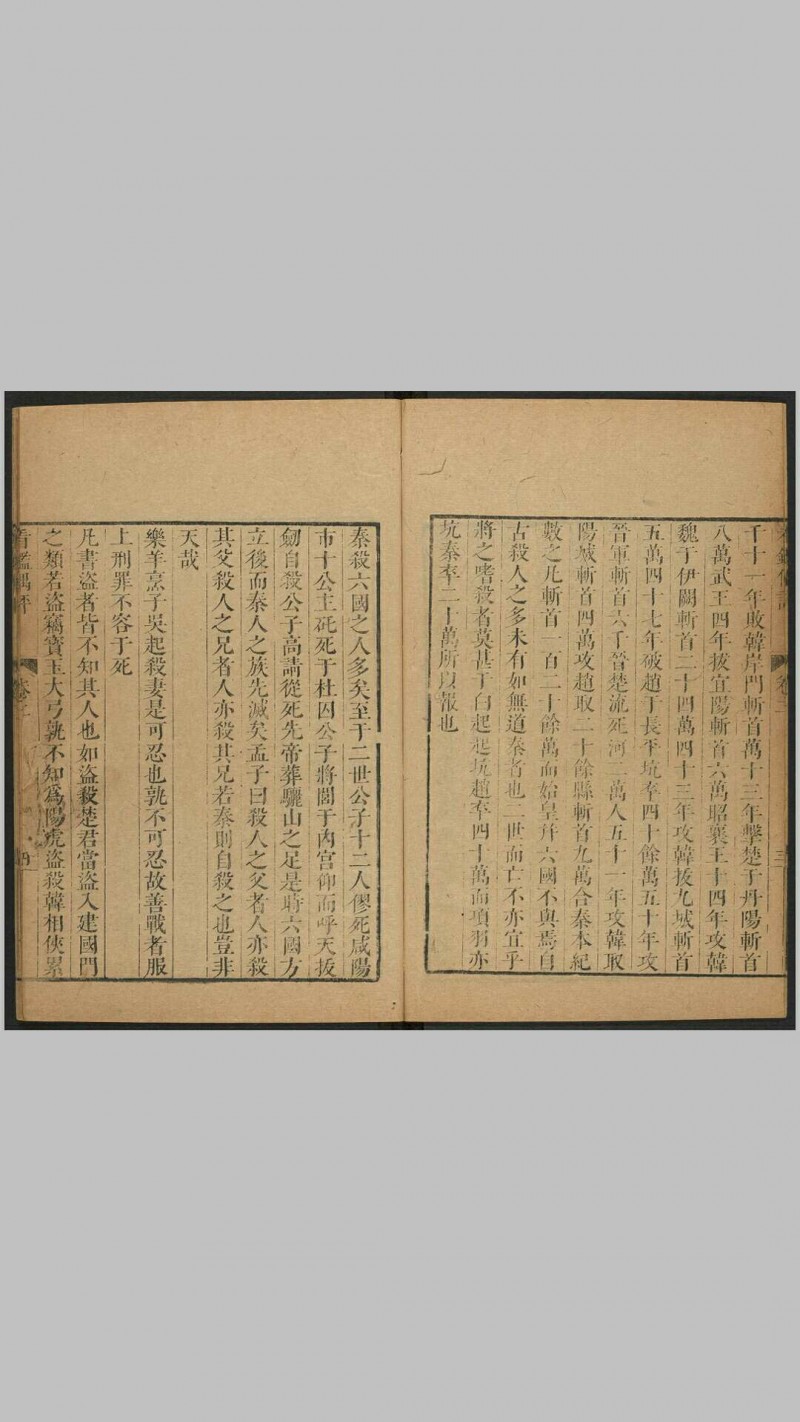 千十一年敗韓岸門斬首萬十三年擊楚于丹陽斬首
八萬武王四年拔宜陽斬首六萬昭襄王十四年攻韓
魏于伊闕斬首二十四萬四十三年攻韓拔九城斬首
五萬四十七年破趙于長平坑卒四十餘萬五十年攻
晉軍斬首六千晉楚流死河二萬人五十一年攻韓取
陽城斬首四萬攻趙取二十餘縣斬首九萬合秦本紀
數之凡斬首一百二十餘萬而始皇幷六國不與焉自
古殺人之多未有如無道秦者也二世而亡不亦宜乎
將之嗜殺者莫甚于白起起坑趙卒四十萬而項羽亦
坑秦卒二十萬所以報也
秦殺六國之人多矣至于二世公子十二人僇死咸陽
市十公主矺死于杜囚公子將閭于內宮仰而呼天拔
劒自殺公子高請從死先帝葬驪山之足是時六國方
立後而秦人之族先滅矣孟子曰殺人之父者人亦殺
其父殺人之兄者人亦殺其兄若秦則自殺之也豈非
天哉
樂羊烹子吳起殺妻是可忍也孰不可忍故善戰者服
上刑罪不容于死
凡書盜者皆不知其人也如盜殺楚君當盜入建國門
之類若盜竊寶玉大弓孰不知爲陽虎盜殺韓相俠累
卷二
四